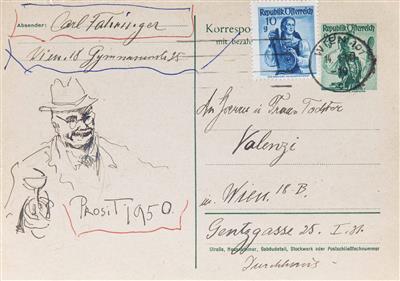 Absender: Carl Fahringer
Wien 18 Gymnasiumstr 25
Korrespo
mit bezahl
Republik Österreich
10
g
Republik Österreich
WIEN
An Herrn u Frau Doktor
Valenzi
in Wien 18 B.
Gentzgasse 25. I. St.
Straße, Hausnummer, Gebäudeteil, Stockwerk oder Postschließfachnummer
PROSIT 1950.